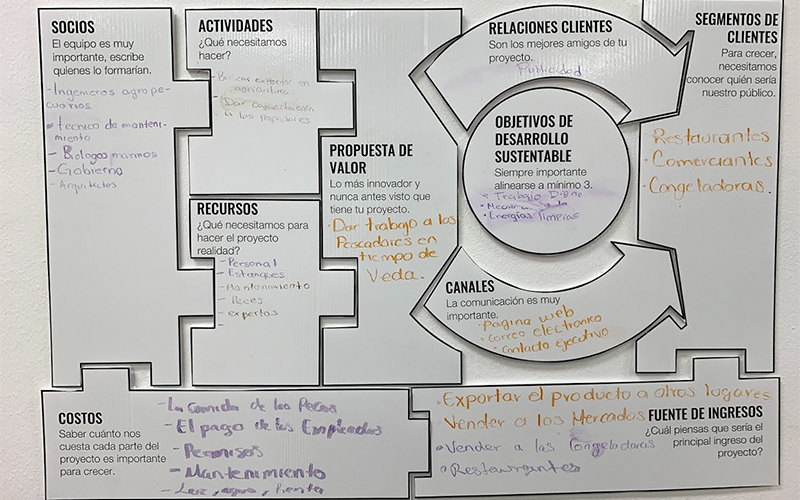 SOCIOS
El equipo es muy
importante, escribe
quienes lo formarían.
- Ingenieros agrope-
cuarios
• técnico de manteni-
miento
- Biologos marinos
- Gobierno
- Arquitectos
ACTIVIDADES
¿Qué necesitamos
hacer?
- Buscar expertos en
agricultura
- Dar capacitación
a los
RECURSOS
¿Qué necesitamos para
hacer el proyecto
realidad?
- Personal
- Estanques
- Mantenimiento
- Peces
- expertos
-
PROPUESTA DE
VALOR
Lo más innovador y
nunca antes visto que
tiene tu proyecto.
• Dar trabajo a los
Pescadores en
tiempo de
Veda.
RELACIONES CLIENTES
Son los mejores amigos de tu
proyecto.
Publicidad
OBJETIVOS DE
DESARROLLO
SUSTENTABLE
Siempre importante
alinearse a mínimo 3.
• Trabajo Digno
• Energías limpias
CANALES
La comunicación es muy
importante.
• Pagina web
• Correo electronico
• Contacto ejecutivo
SEGMENTOS DE
CLIENTES
Para crecer,
necesitamos
conocer quién sería
nuestro público.
• Restaurantes
• Comerciantes
• Congeladoras.
COSTOS
Saber cuánto nos
cuesta cada parte del
proyecto es importante
para crecer.
- La Comida de los Peces
- El pago de los Empleados
- Permisos
- Mantenimiento
- Luz, agua, renta
FUENTE DE INGRESOS
¿Cuál piensas que sería el
principal ingreso del
proyecto?
• Exportar el producto a otros lugares
• Vender a los Mercados
• Vender a las Congeladoras
• Restaurantes